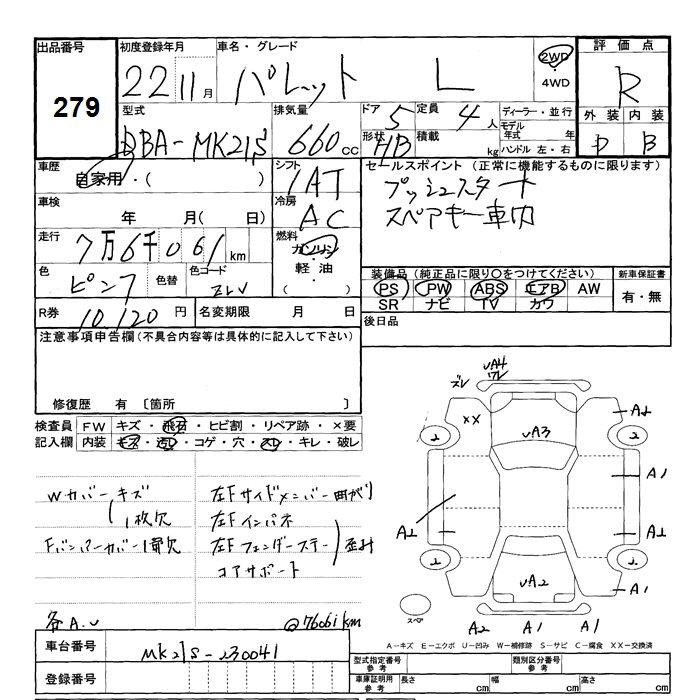 出品番号
279
初度登録年月
22 11月
車名・グレード
パレット L
2WD
・
4WD
評価点
R
外装 内装
D B
型式
DBA-MK21S
排気量
660cc
ドア 5
形状 HB
定員 4人
積載 kg
ディーラー・並行
モデル年式 年
ハンドル 左・右
車歴
自家用・( )
シフト
IAT
セールスポイント (正常に機能するものに限ります)
プッシュスタート
スペアキー車内
車検
年 月( 日)
冷房
AC
走行
7万6千061km
燃料
ガソリン
軽油
・( )
色
ピンク
色替
色コード
ZLV
装備品 (純正品に限り○をつけてください)
PS PW ABS エアB AW
SR ナビ TV カワ
新車保証書
有・無
R券 10,120円
名変期限 月 日
後日品
注意事項申告欄(不具合内容等は具体的に記入して下さい)
修復歴 有 〔箇所 〕
検査員記入欄
FW キズ・飛石・ヒビ割・リペア跡・×要
内装 キズ・汚レ・コゲ・穴・スレ・キレ・破レ
Wカバーキズ
1枚欠
Fバンパーカバー1箇欠
左Fサイドメンバー曲がり
左Fインパネ
左Fフェンダーステー
コアサポート
歪み
各A.U
@76061km
UA4
ワレ
ズレ
XX
A2
2 2
UA3
A1
A2 A1
2 2
UA2
A1
スペア
A2 A1 A1
A-キズ E-エクボ U-凹み W-補修跡 S-サビ C-腐食 XX-交換済
車台番号
MK21S-230041
登録番号
型式指定番号 参考
類別区分番号 参考
車庫証明用 参考
長さ cm
幅 cm
高さ cm